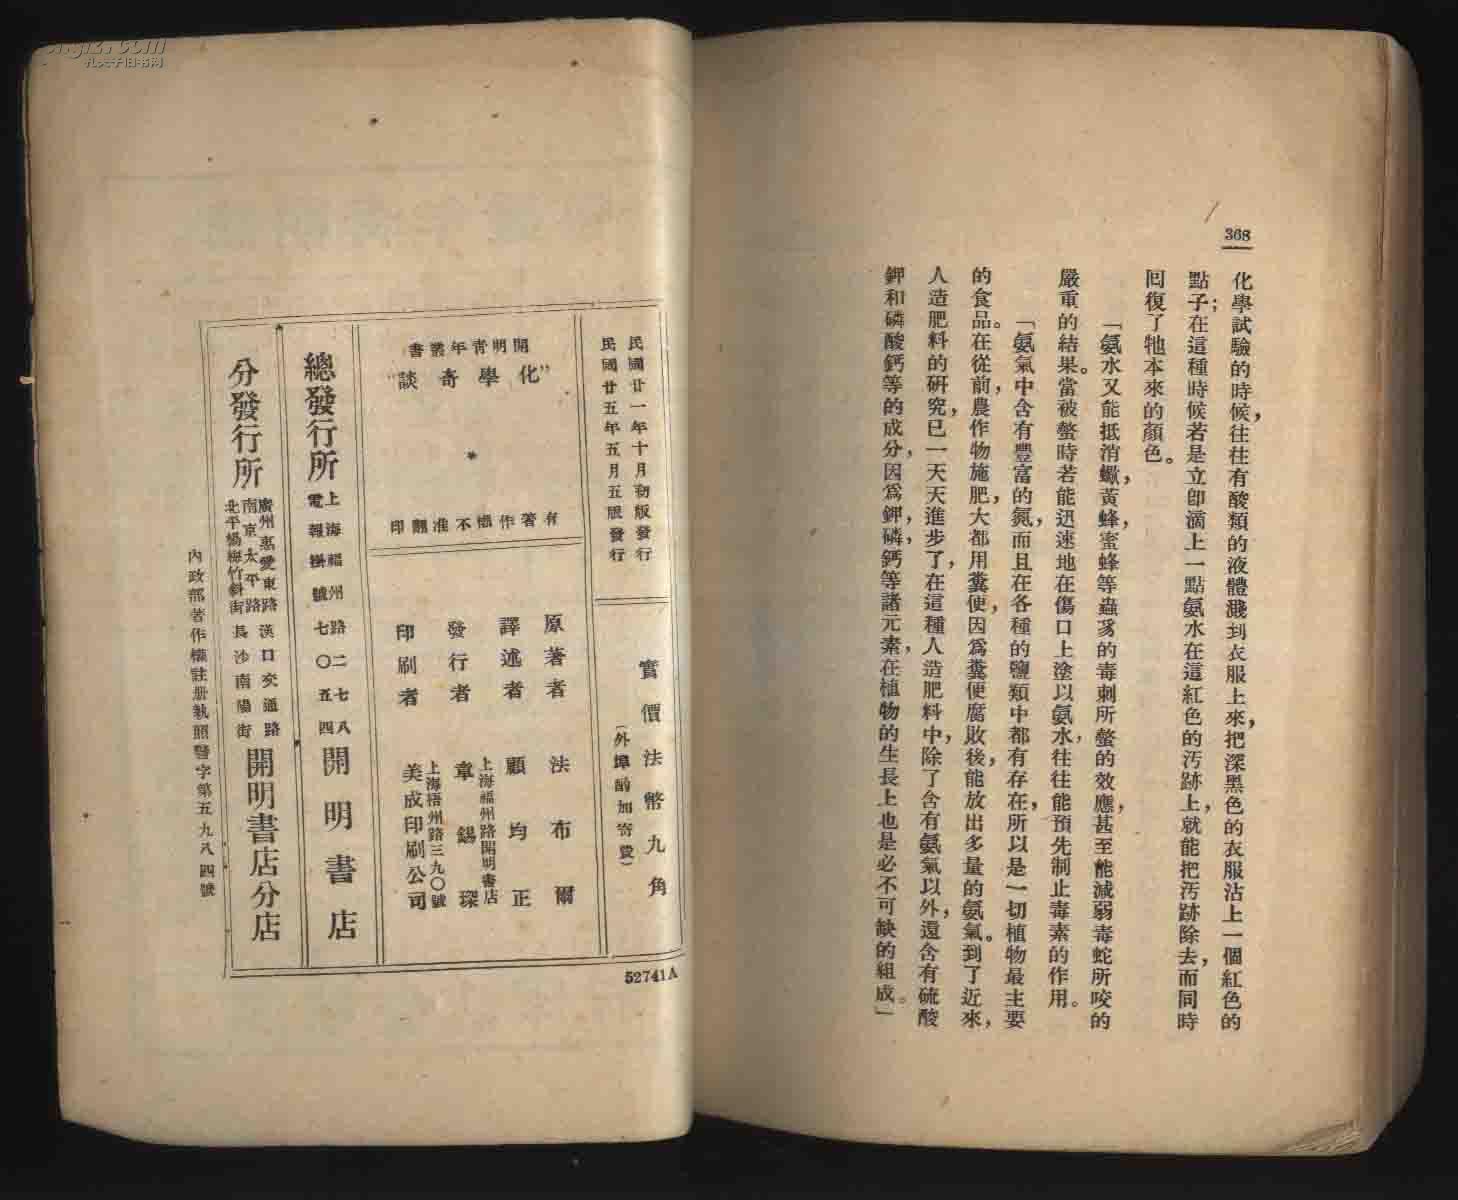 368
化學試驗的時候，往往有酸類的液體濺到衣服上來，把深黑色的衣服沾上一個紅色的
點子；在這種時候若是立卽滴上一點氨水在這紅色的汚跡上，就能把汚跡除去，而同時
囘復了牠本來的顏色。
「氨水又能抵消蠍，黃蜂，蜜蜂等蟲豸的毒刺所螫的效應，甚至能減弱毒蛇所咬的
嚴重的結果。當被螫時若能迅速地在傷口上塗以氨水，往往能預先制止毒素的作用。
「氨氣中含有豐富的氮，而且在各種的鹽類中都有存在，所以是一切植物最主要
的食品。在從前，農作物施肥，大都用糞便，因爲糞便腐敗後，能放出多量的氨氣。到了近來，
人造肥料的研究，已一天天進步了，在這種人造肥料中，除了含有氨氣以外，還含有硫酸
鉀和磷酸鈣等的成分，因爲鉀，磷，鈣等諸元素，在植物的生長上也是必不可缺的組成。」
民國廿一年十月初版發行
民國廿五年五月五版發行
實價法幣九角
(外埠酌加寄費)
開明靑年叢書
"化學奇談"
*
有著作權不准翻印
原著者 法布爾
譯述者 顧均正
上海福州路開明書店
發行者 章錫琛
上海梧州路三九〇號
印刷者 美成印刷公司
總發行所
上海福州路二七八
電報掛號七〇五四
開明書店
分發行所
廣州惠愛東路 漢口交通路
南京太平路 長沙南陽街
北平楊梅竹斜街
開明書店分店
內政部著作權註册執照警字第五九八四號
52741A
孔夫子旧书网